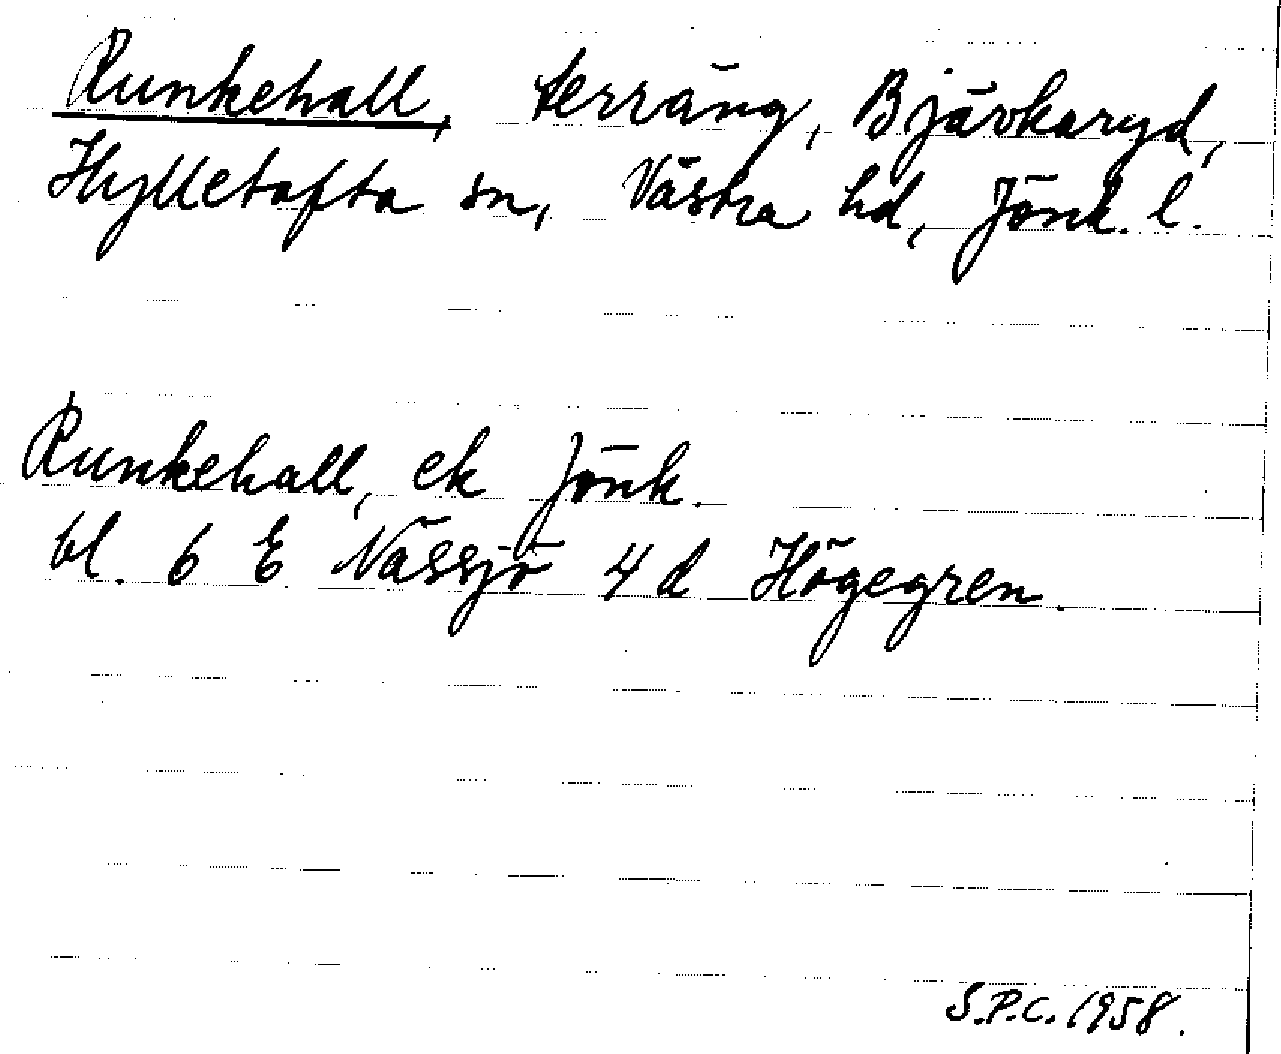 Runkehall, terräng, Bjärkaryd,
Hylletofta sn, Västra hd, Jönk. l.
Runkehall, ek Jönk.
bl. 6 E Nässjö 4 d Högegren.
S.P.C. 1958.